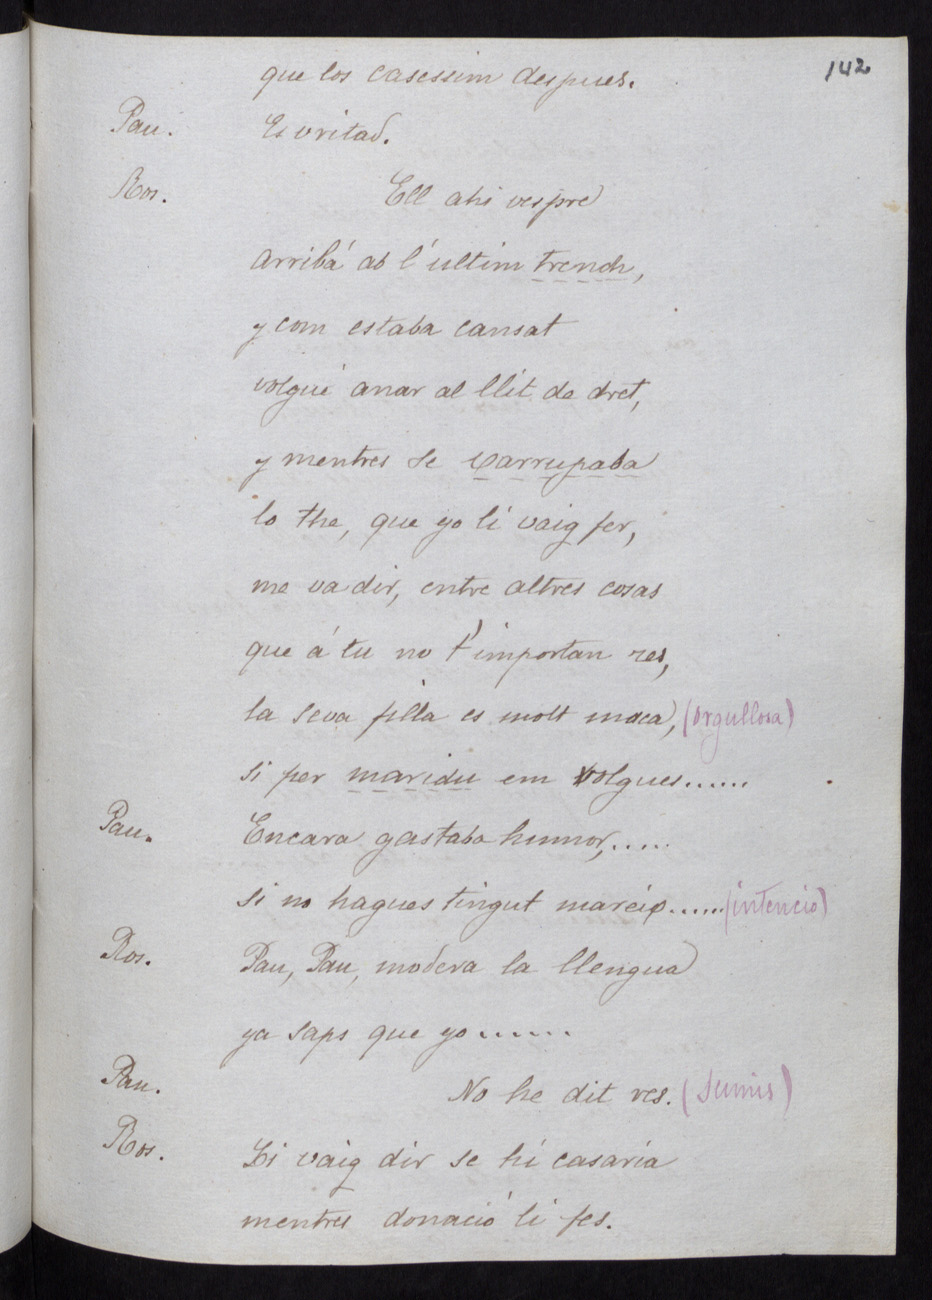 142
que los casessim despues.
Pau. Es vritad.
Ros. Ell ahi vespre
arribá ab l'ultim trench,
y com estaba cansat
volgué anar al llit de dret,
y mentres se xarrupaba
lo the, que yo li vaig fer,
me va dir, entre altres cosas
que á tu no t'importan res,
la seva filla es molt maca, (orgullosa)
si per maridu em volgues......
Pau. Encara gastaba humor,.....
si no hagues tingut marcip...... (intenció)
Ros. Pau, Pau, modera la llengua
ya saps que yo......
Pau. No he dit res. (Sumis)
Ros. Li vaig dir se hi casaria
mentres donació li fes.